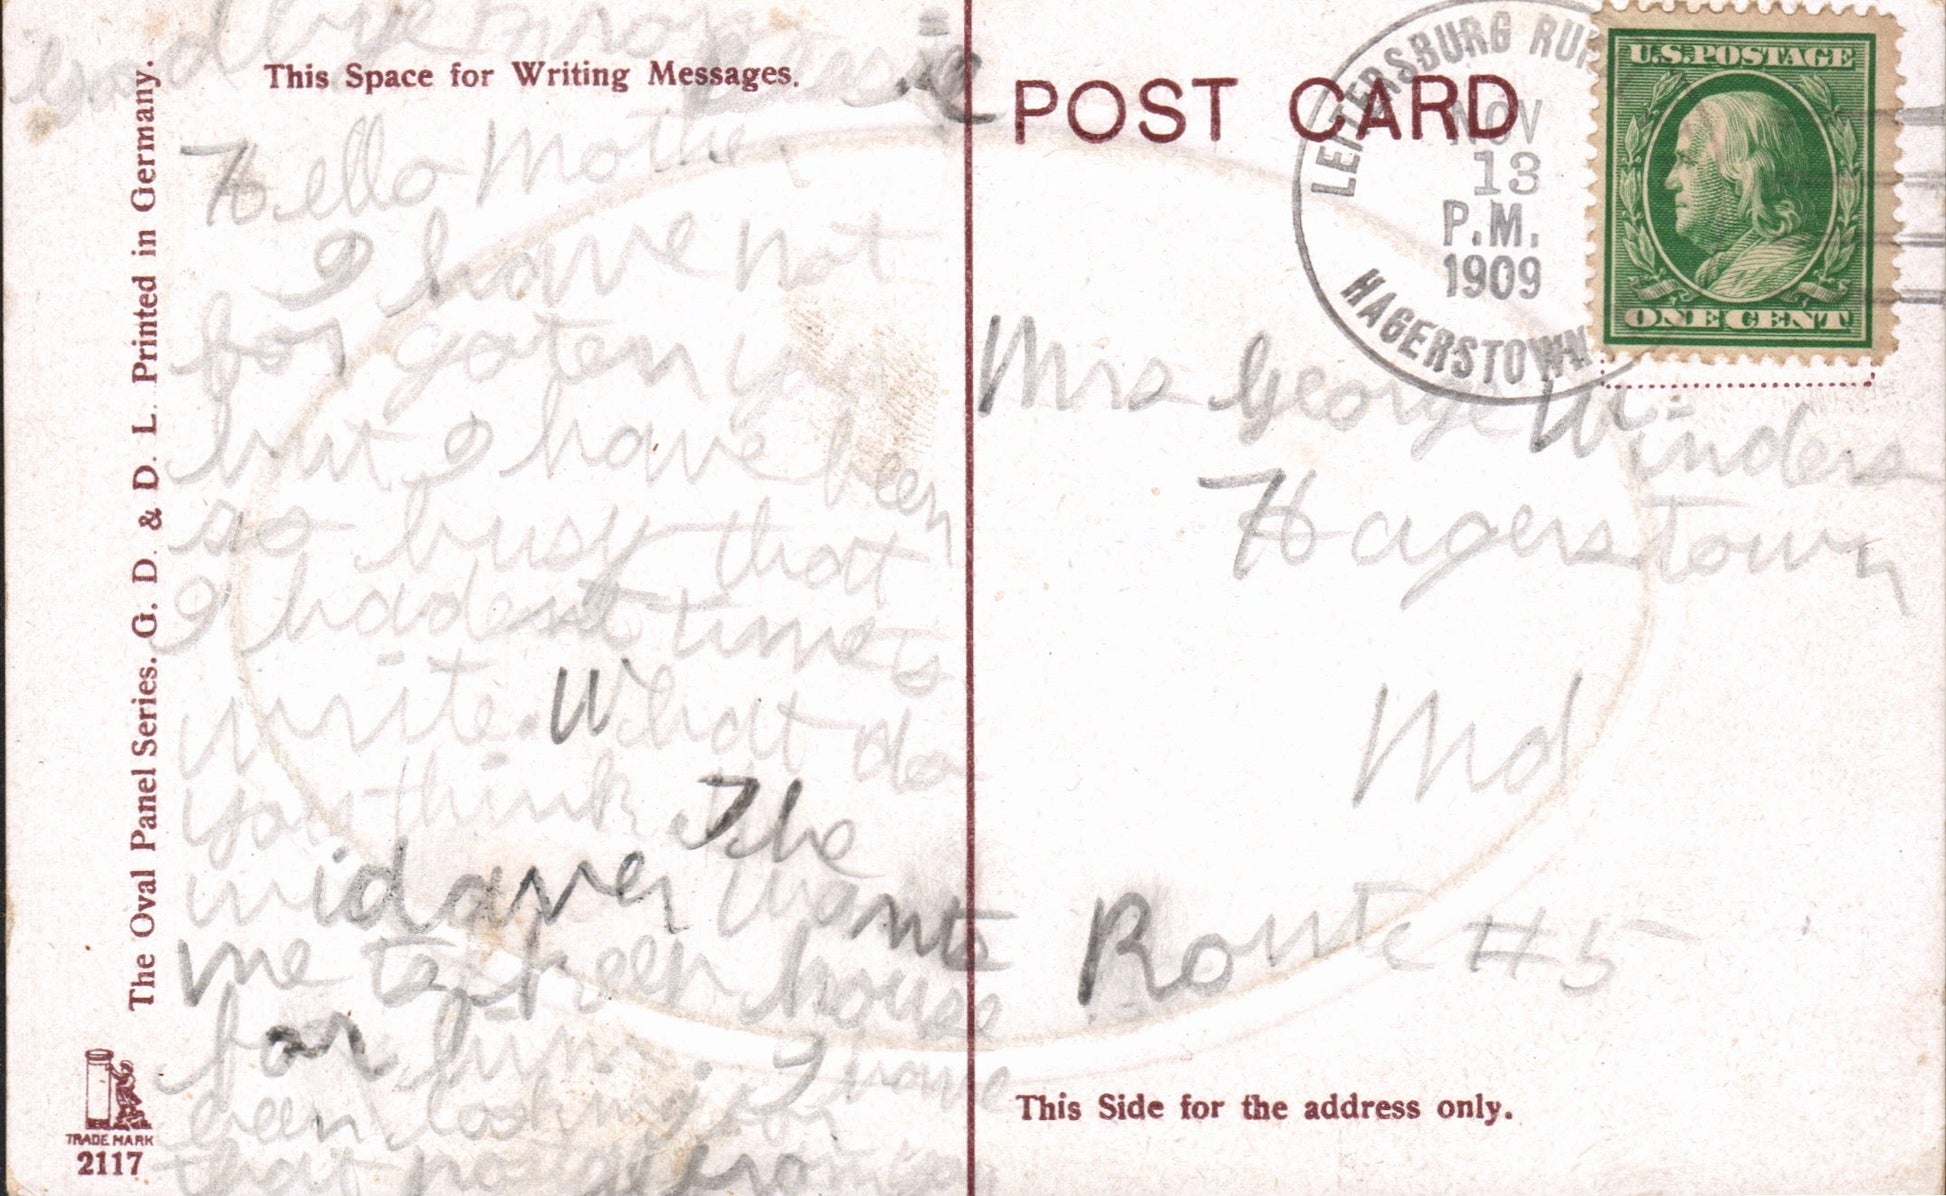 good love from
Bessie
This Space for Writing Messages.
Hello Mother
I have not
for goten you
but I have been
so busy that
I hadent time to
write. What do
you think. The
widaver wants
me to keep house
for him. I have
been looking for
that postal from you
The Oval Panel Series. G. D. & D. L. Printed in Germany.
TRADE MARK
2117
POST CARD
LEITERSBURG RUR
NOV
13
P.M.
1909
HAGERSTOWN
U.S. POSTAGE
ONE CENT
Mrs George Winders
Hagerstown
Md
Route #5
This Side for the address only.